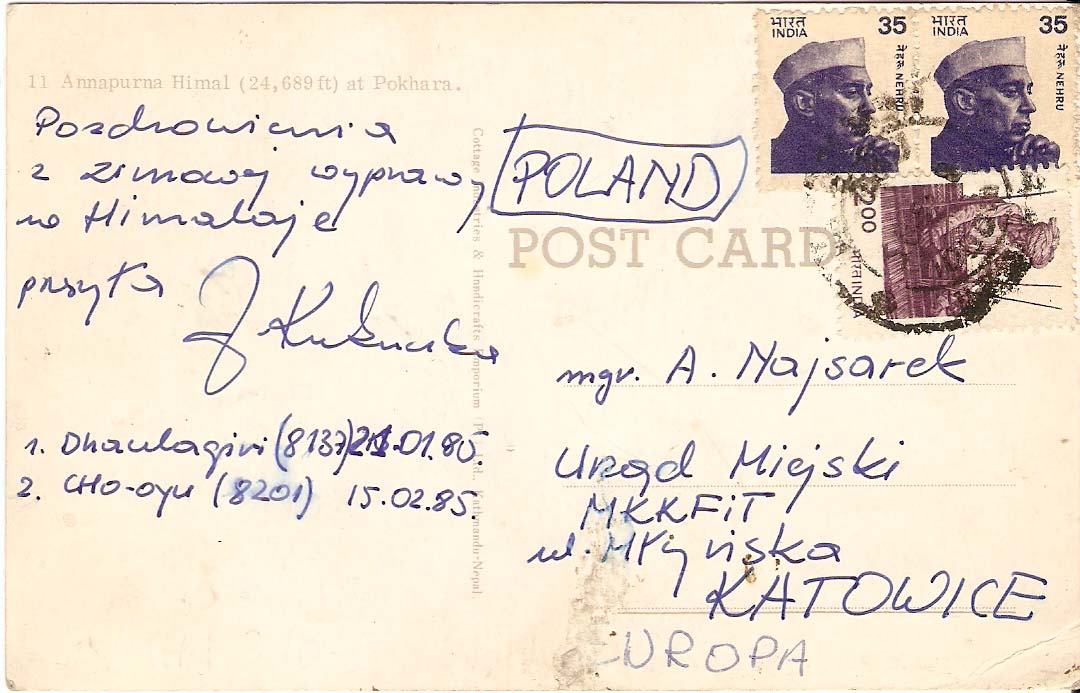 11 Annapurna Himal (24,689 ft) at Pokhara.
Pozdrowienia
z zimowej wyprawy
w Himalaje
przysyła
J Kukuczka
1. Dhaulagiri (8137) 21.01.85.
2. CHO-oyu (8201) 15.02.85.
Cottage Industries & Handicrafts Emporium (P) Ltd., Kathmandu-Nepal.
भारत
INDIA
35
नेहरू NEHRU
भारत
INDIA
35
नेहरू NEHRU
2.00
भारत INDIA
POLAND
POST CARD
mgr. A. Najsarek
Urząd Miejski
MKKFiT
ul. Młyńska
KATOWICE
EUROPA